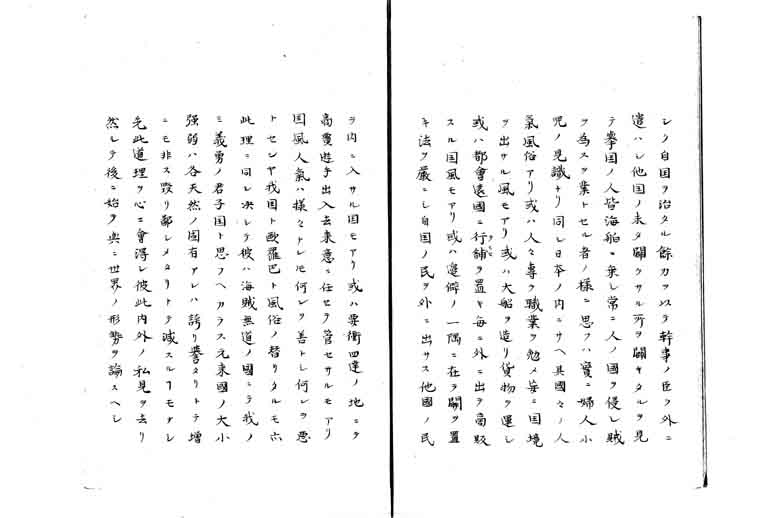 レク自国ヲ治タル餘力ヲ以テ幹事ノ臣ヲ外ニ
遣ハレ他国ノ未タ闢クサル所ヲ闢キタルヲ見
テ挙国ノ人皆海舶ニ乗レ常ニ人ノ国ヲ侵レ賊
ヲ為スヲ業トセル者ノ様ニ思フハ實ニ婦人小
児ノ見識ナリ同レ日本ノ内ニサヘ其國々ノ人
氣風俗アリ或ハ人々専ラ職業ヲ勉メ毎ニ国境
ヲ出サル風モアリ或ハ大船ヲ造リ貨物ヲ運レ
或ハ都會遠國ニ行舗ヲ置キ毎ニ外ニ出テ商販
スル国風モアリ或ハ邊僻ノ一隅ニ在テ關ヲ置
キ法ヲ嚴ニレ自国ノ民ヲ外ニ出サス他國ノ民
ヲ内ニ入サル国モアリ或ハ要衝四達ノ地ニテ
商賈遊手出入去来意ニ任セテ管セサルモアリ
国風人氣ハ様々ナレ𪜈何レヲ善トレ何レヲ悪
トセンヤ我国ト歐羅巴ト風俗ノ替リタルモ亦
此理ニ同レ决レテ彼ハ海賊無道ノ國ニテ我ノ
ミ義勇ノ君子国ト思フヘカラス元来國ノ大小
強弱ハ各天然ノ固有アレハ誇リ誉タリトテ増
ニモ非ス毀リ鄙レメタリトテ減スルヿモナレ
先此道理ヲ心ニ會得レ彼此内外ノ私見ヲ去リ
然レテ後ニ始テ與ニ世界ノ形勢ヲ論スヘレ